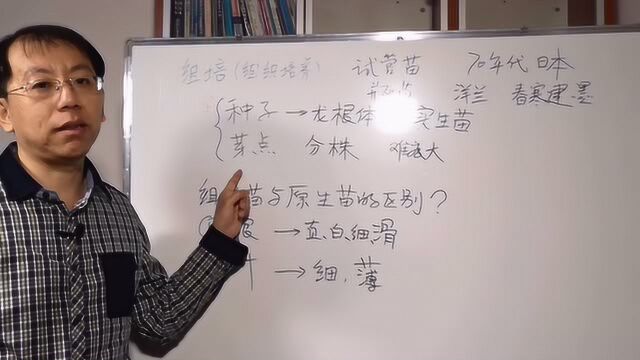 组培(组织培养) 试管苗 70年代 日本
洋兰 春寒建墨
种子→龙根体 实生苗
芽点 分株 难度大
组 苗与原生苗的区别?
①根→直、白、细、滑
叶→细、薄